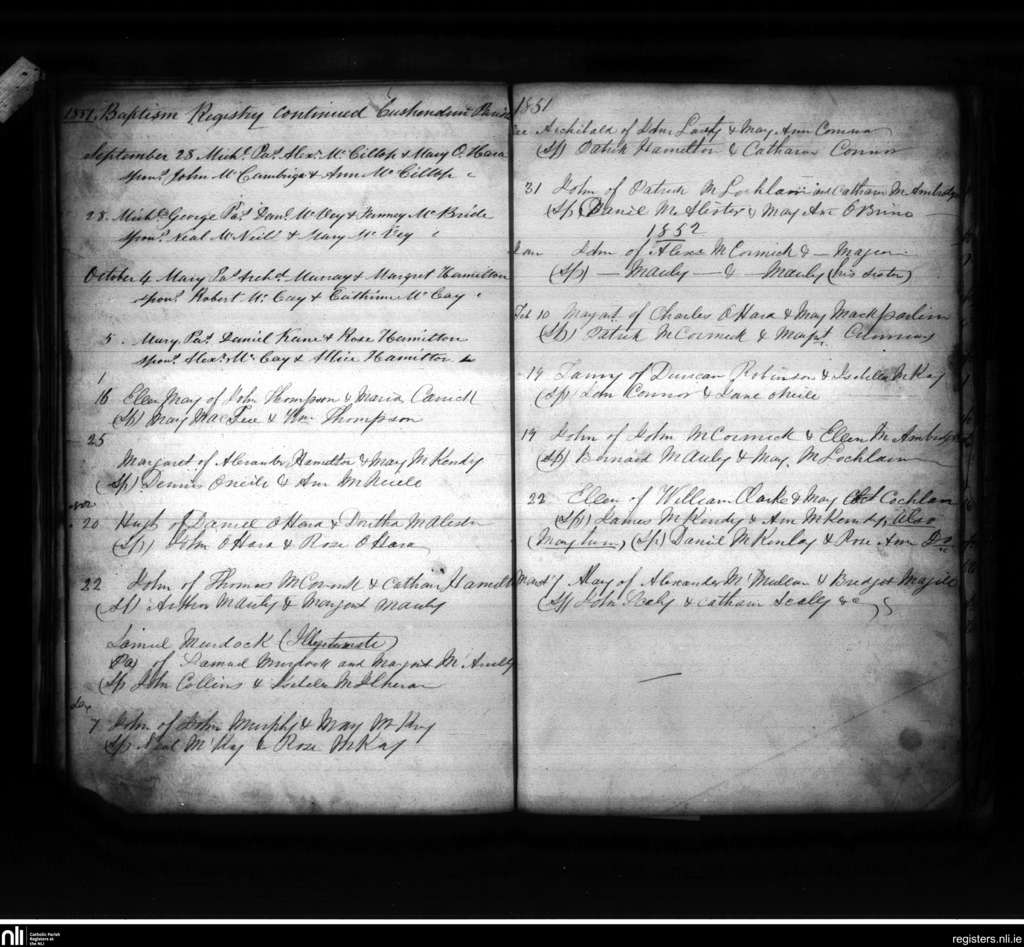 1851. Baptism Registry continued Cushendun Parish
September 28 Michl. Pat. Alexr. Mc Cillop & Mary O'Hara
sponr. John McCambrige & Ann Mc Cillop
28. Michl. George Pat. Danl. McVey & McBride
sponr. Neal McNeill & Mary McVey
October 4 Mary Pat. Archd. Murray & Margret Hamilton
sponr. Robert Mc Cay & Cathrine McCay
5. Mary Pat. Daniel Kane & Rose Hamilton
sponr. Alexr. Mc Cay & Allice Hamilton
16 Ellen May of John Thompson & Maria
(Sp) Mary MacFee & Wm. Thompson
25
Margaret of Alexander Hamilton & Mary McKendy
(Sp) Dennis Oneile & Ann McNeile
Nov
20 Hugh of Daniel O Hara &
(Sp) John O Hara & Rose O Hara
22 John of Thomas McCormick & Catharn Hamilton
(Sp) Arthur Mauley & Margaret Mauley
Samuel Murdock (Illegitimate)
Pa) of Samuel Murdock and Margaret
(Sp John Collins &
Dec
7 John of John Murphy & May McKay
(Sp Neal McKay & Rose McKay
1851
Dec Archibald of John & May Ann Connor
(Sp) Patrick Hamelton & Catharn Connor
31 John of Patrick McLochlain and Catharn McAmbridge
(Sp) Daniel McAlister & May Ann O Brine
1852
Jan John of Alexr McCormick & — Major
(Sp) — Mauley — & — Mauley (his sister)
Feb 10 Margat. of Charles O Hara & May
(Sp) Patrick McCormick & Magt.
14 Fanny of Duncan Robinson & Isabella McKay
(Sp) John Connor & Jane oNeile
19 John of John McCormick & Ellen McAmbridge
(Sp) Bernard Mauley & May McLochlain
22 Ellen of William Clarke & May Cochlan
(Sp) James McKendy & Ann McKendy, Also
(May twin) (Sp) Daniel McKinlay & Rose Ann Do
March 7 May of Alexander McMullan & Bridget Magill
(Sp) John Scally & Catharn Scally &c
nli
Catholic Parish
Registers at
the NLI
registers.nli.ie